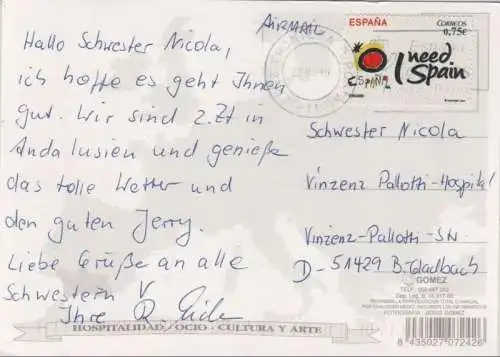 AIRMAIL
ESPAÑA
CORREOS
0,75€
I need
Spain
ESPAÑA
Hallo Schwester Nicola,
ich hoffe es geht Ihnen
gut. Wir sind z.Zt in
Andalusien und genieße
das tolle Wetter und
den guten Jerry.
Liebe Grüße an alle
Schwestern
Ihre
Schwester Nicola
Vinzenz Pallotti-Hospital
Vinzenz-Pallotti-Str.
D-51429 B.Gladbach
GOMEZ
HOSPITALIDAD / OCIO - CULTURA Y ARTE
8 435027 072426